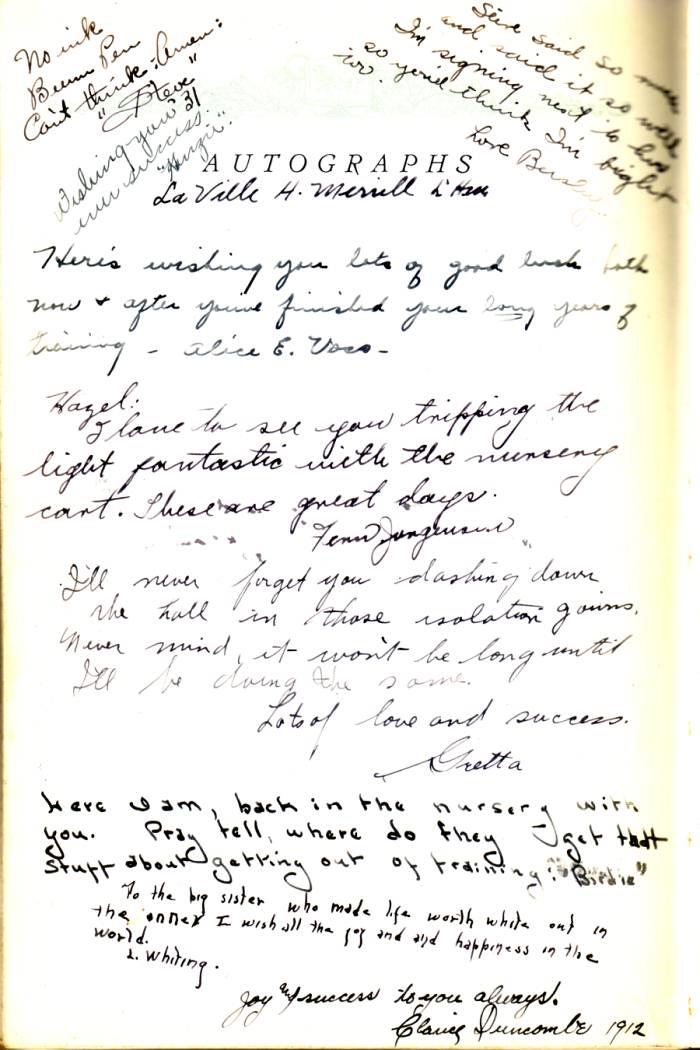 No ink
Bum Pen
Can't think - Amen:
"Steve"
31
Wishing you
ever success.
Steve said so much
and said it so well
I'm signing next to her
so you'd think I'm bright
too.
Love
AUTOGRAPHS
LaVille H. Merrill
Here's wishing you lots of good luck both
now & after you've finished your long years of
training - Alice E. Voss -
Hazel:
I love to see you tripping the
light fantastic with the nursery
cart. These are great days.
Fern Jorgensen
I'll never forget you dashing down
the hall in those isolation gowns.
Never mind, it won't be long until
I'll be doing the same.
Lots of love and success.
Gretta
Here I am, back in the nursery with
you. Pray tell, where do they get that
stuff about getting out of training? "Birdie"
To the big sister who made life worth while out in
the annex I wish all the joy and and happiness in the
world.
L. Whiting.
Joy and success to you always.
Duncombe 1912